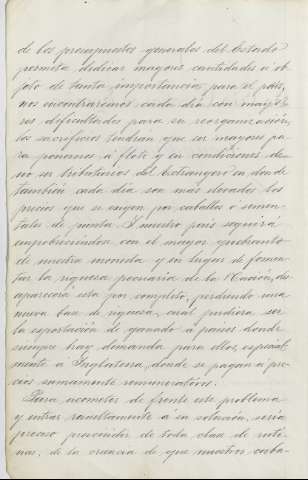 de los presupuestos generales del Estado
permita, dedicar mayores cantidades á ob-
jeto de tanta importancia para el país,
nos encontraremos cada día con mayo-
res dificultades para su reorganización,
los sacrificios tendrán que ser mayores pa-
ra ponernos á flote y en condiciones de
no ser tributarios del Extrangero en donde
también cada día son más elevados los
precios que se exigen por caballos ó semen-
tales de punta. I nuestro país seguirá
empobreciéndose con el mayor quebranto
de nuestra moneda y en lugar de fomen-
tar la riqueza pecuaria de la Nación, des-
aparecerá esta por completo, perdiendo una
nueva base de riqueza, cual pudiera ser
la exportación de ganado á países donde
siempre hay demanda para ellos, especial-
mente á Inglaterra, donde se pagan á pre-
cios sumamente remuneratorios.
Para acometer de frente este problema
y entrar resueltamente á su solución, sería
preciso prescindir de toda clase de ruti-
nas, de la creencia de que nuestros caba-